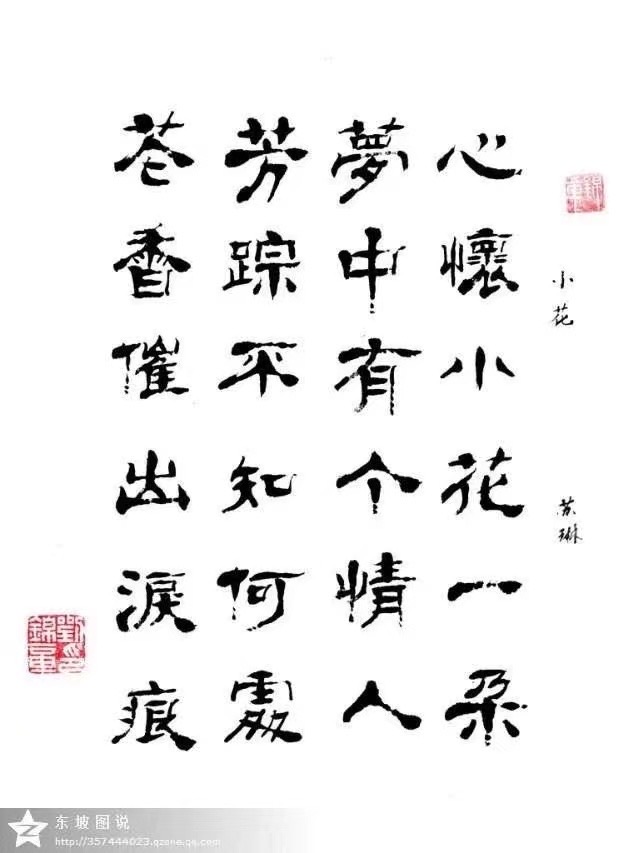 小花
苏琳
心懷小花一朵
夢中有个情人
芳踪不知何處
花香催出淚痕
东坡图说
http://357444023.qzone.qq.com/